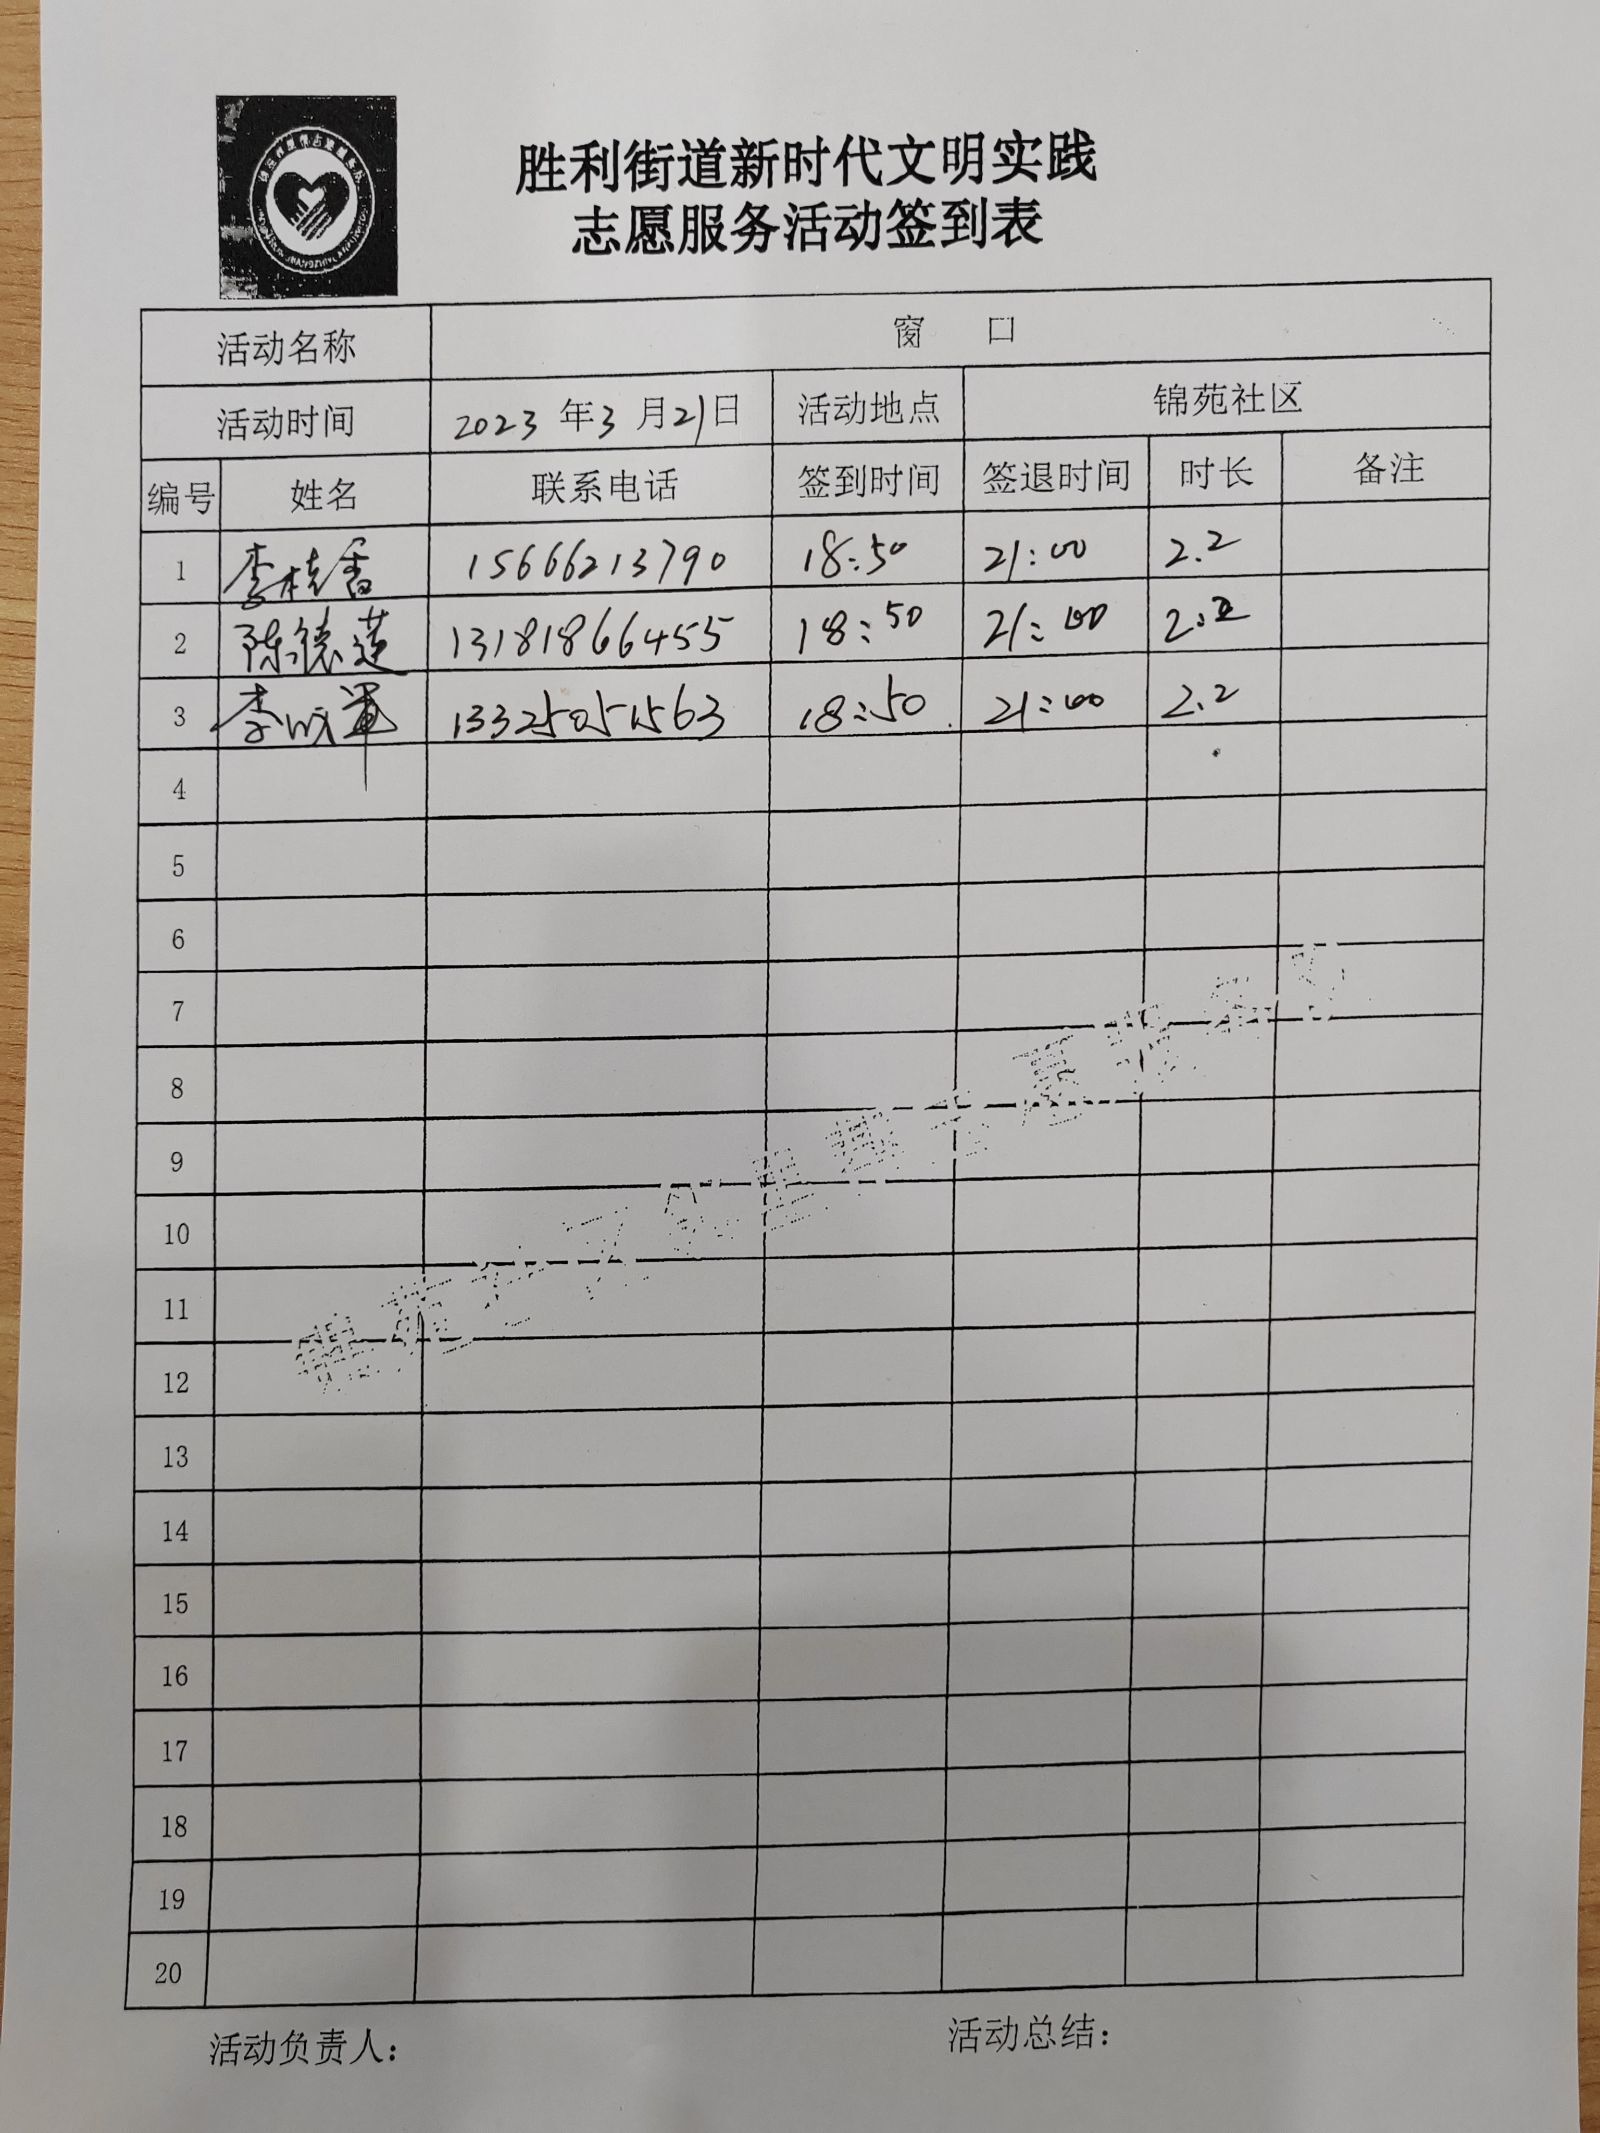 胜利街道新时代文明实践
志愿服务活动签到表
活动名称 窗 口
活动时间 2023 年 3 月 21 日 活动地点 锦苑社区
编号 姓名 联系电话 签到时间 签退时间 时长 备注
1 李桂香 15666213790 18:50 21:00 2.2
2 陈德莲 13181866455 18:50 21:00 2.2
3 李成军 13325051563 18:50 21:00 2.2
4
5
6
7
8
9
10
11
12
13
14
15
16
17
18
19
20
活动负责人: 活动总结: